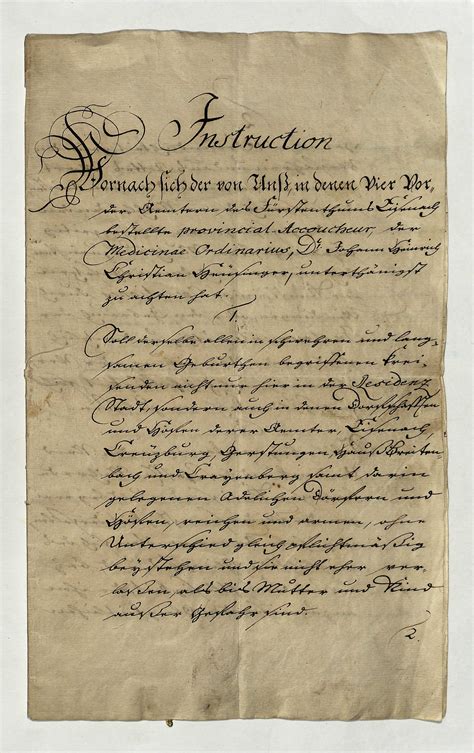 Instruction
Wornach sich der von Unß, in denen Vier Vor-
der Aemtern des Fürstenthums Eisenach
bestellte provincial Accoucheur, der
Medicinae Ordinarius, Dr. Johann Heinrich
Christian unterthänigst
zu achten hat.
1.
Soll derselbe allen in schwehren und lang-
samen Geburthen begriffenen Krei-
senden nicht nur hier in der Residenz
Stadt, sondern auch in denen Dorfschafften
und Höfen derer Aemter, Eisenach
Creuzburg, Gerstungen, Hauß Breiten-
bach und Crayenberg samt darin
gelegenen Adelichen Dörfern und
Höfen, reichen und armen, ohne
Unterschied gleich pflichtmäßig
beystehen und sie nicht eher ver-
laßen, als bis Mutter und Kind
außer Gefahr sind.
2.